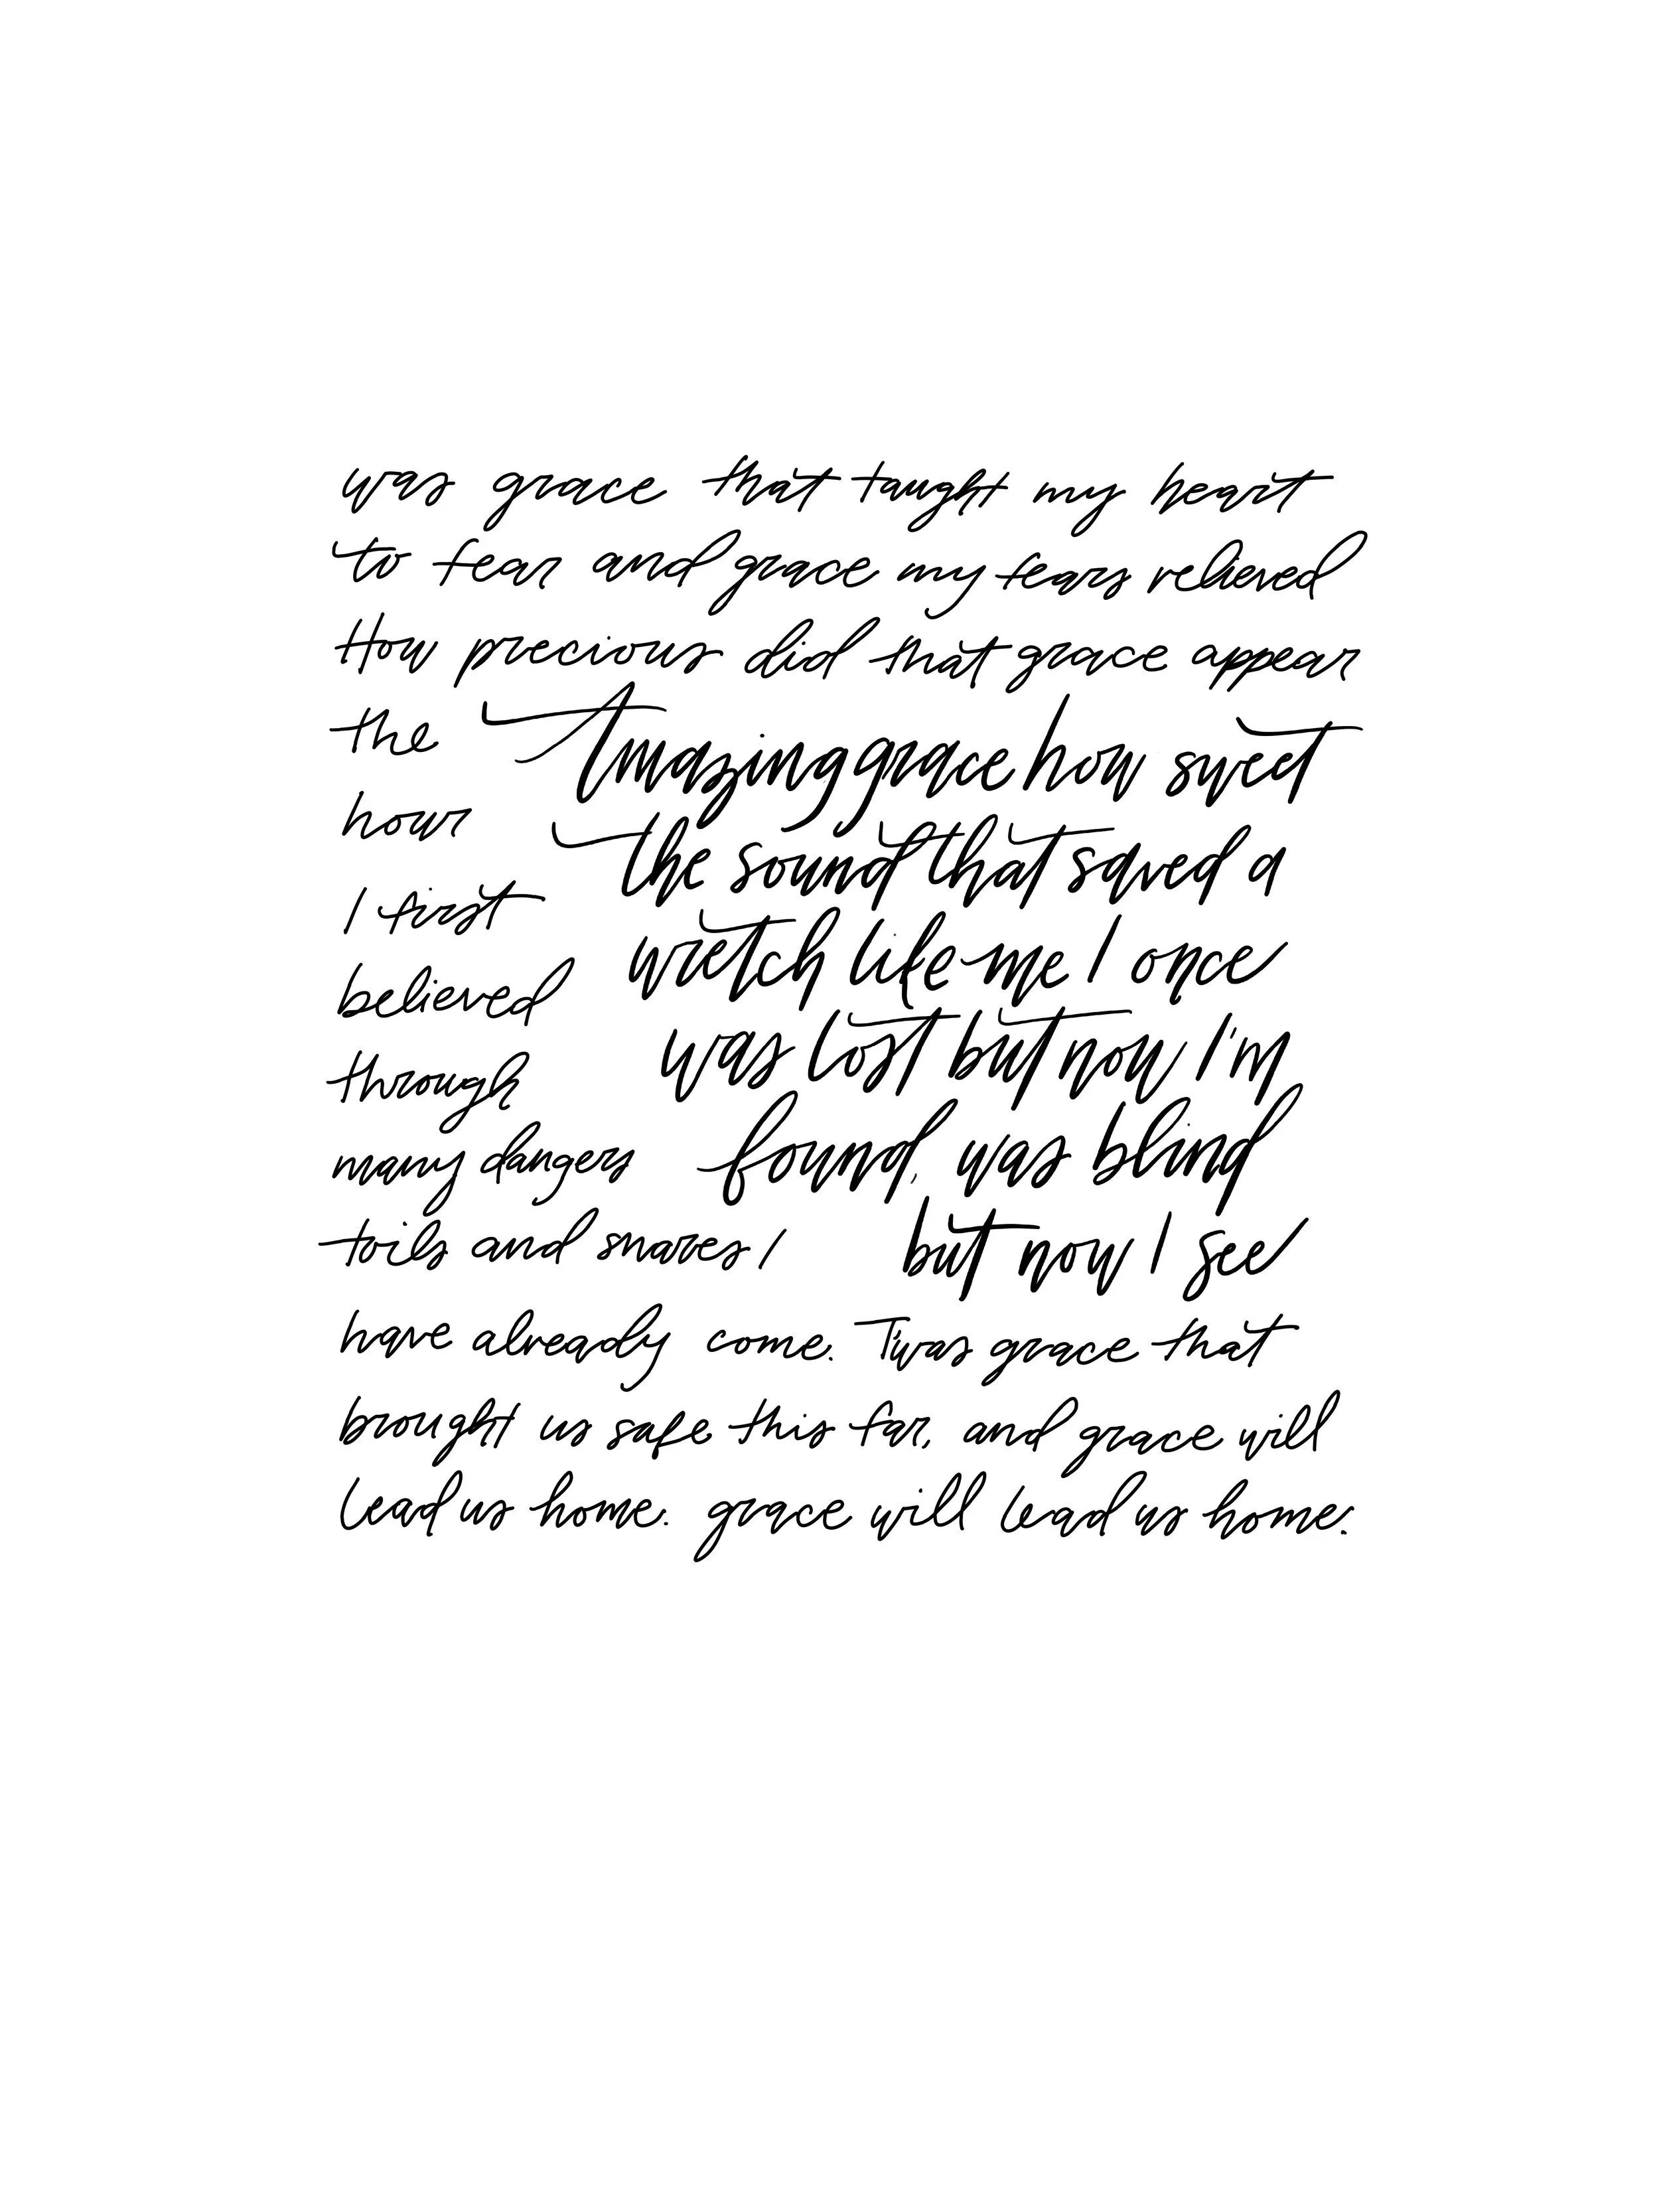 was grace that taught my heart
to fear and grace my fears relieved
How precious did that grace appear
the
hour
I first
believed
through
many dangers
toils and snares I
have already come. T'was grace that
brought us safe this far, and grace will
lead us home. grace will lead us home.
Amazing grace how sweet
the sound that saved a
wretch like me I once
was lost but now I'm
found, was blind
but now I see